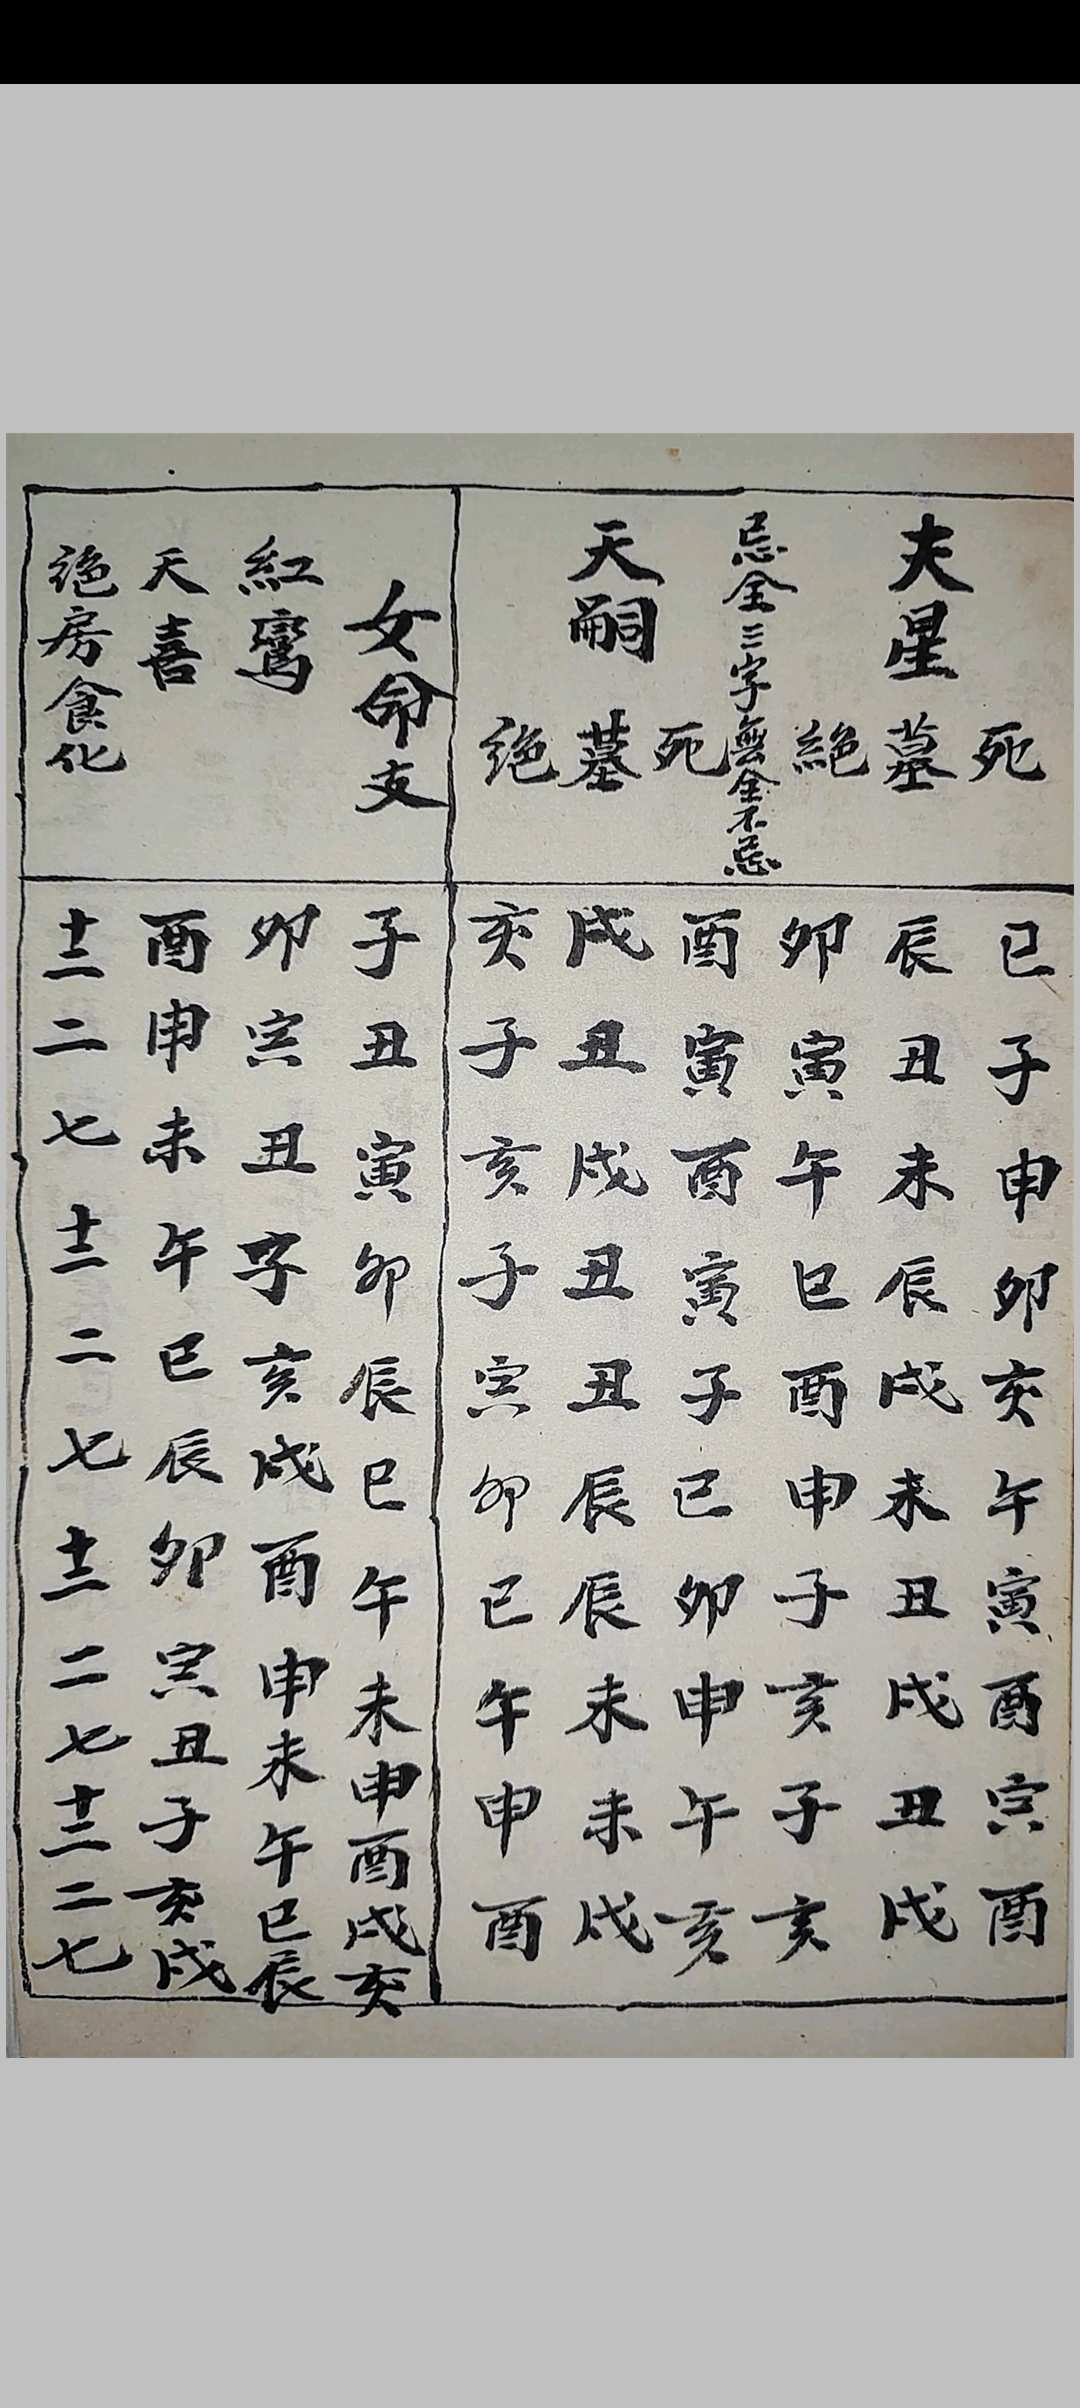 夫星
死 巳子申卯亥午寅酉寅酉
墓 辰丑未辰戌未丑戌丑戌
絕 卯寅午巳酉申子亥子亥
忌全三字無全不忌
天嗣
死 酉寅酉寅子巳卯申午亥
墓 戌丑戌丑丑辰辰未未戌
绝 亥子亥子寅卯巳午申酉
女命支 子丑寅卯辰巳午未申酉戌亥
紅鸞 卯寅丑字亥戌酉申未午巳辰
天喜 酉申未午巳辰卯寅丑子亥戌
绝房食化 十二 二 七 十二 二 七 十二 二 七 十二 二 七